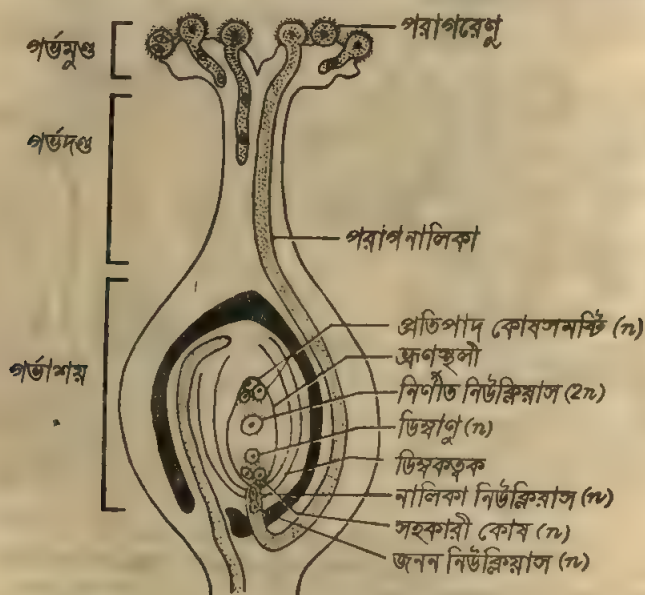 গর্ভমুণ্ড
পরাগরেণু
গর্ভদণ্ড
পরাগনালিকা
গর্ভাশয়
প্রতিপাদ কোষসমষ্টি (n)
ভ্রূণস্থলী
নির্ণীত নিউক্লিয়াস (2n)
ডিম্বাণু (n)
ডিম্বকত্বক
নালিকা নিউক্লিয়াস (n)
সহকারী কোষ (n)
জনন নিউক্লিয়াস (n)